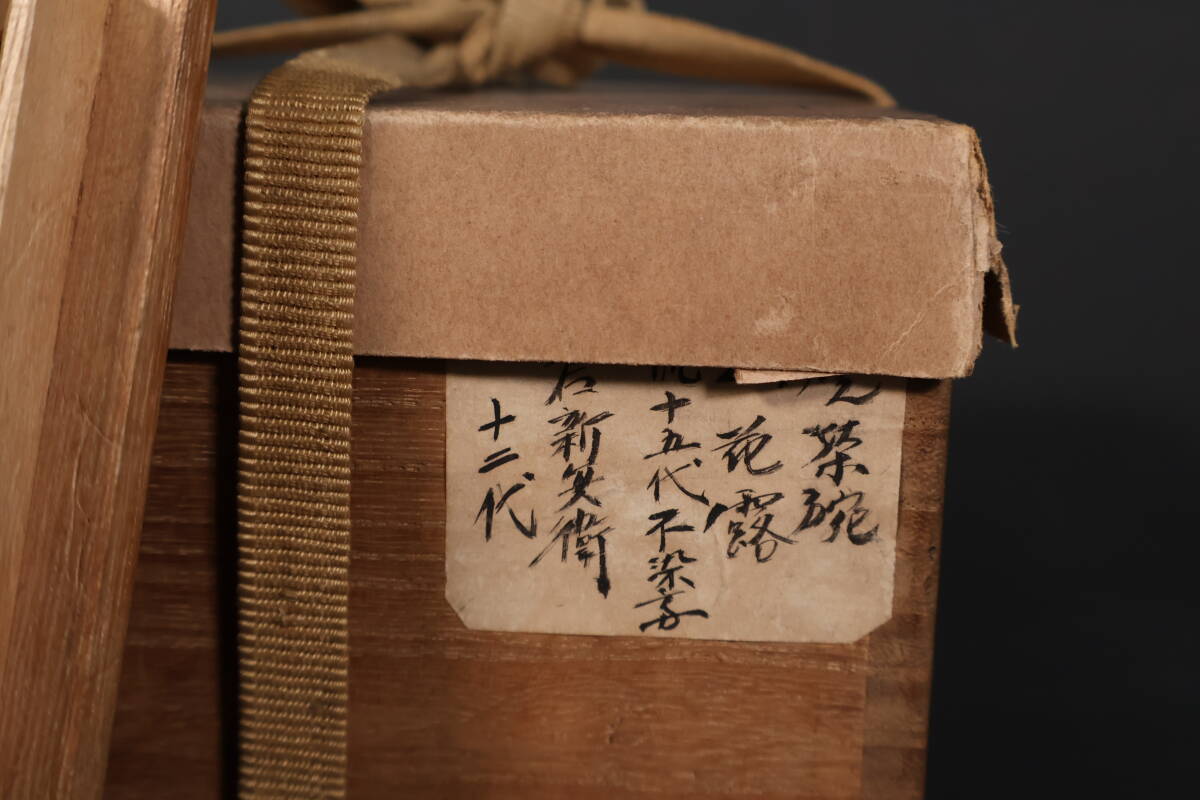 茶碗
花露
十五代不染斎
新兵衛
十二代